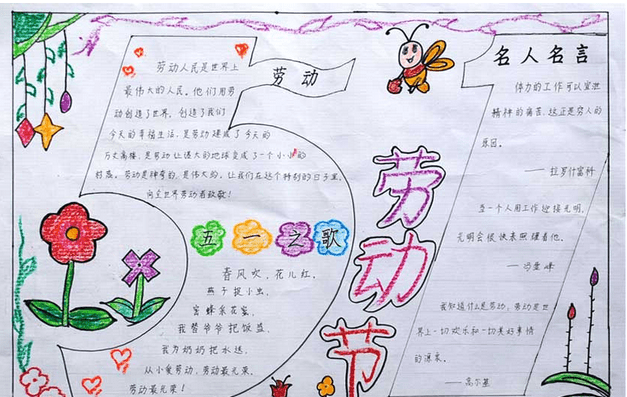 劳动
劳动人民是世界上
最伟大的人民。他们用劳
动创造了世界，创造了我们
今天的幸福生活，是劳动建成了今天的
万丈高楼，是劳动让偌大的地球变成了一个小小的
村庄。劳动是神圣的，是伟大的，让我们在这个特别的日子里，
向全世界劳动者致敬！
五一之歌
春风吹，花儿红，
燕子捉小虫，
蜜蜂采花蜜，
我帮爷爷把饭盛，
我为奶奶把水送，
从小爱劳动，劳动最光荣，
劳动最光荣！
劳动节
名人名言
体力的工作可以宽泄
精神的痛苦，这正是穷人的
原因。
——拉罗什富科
当一个人用工作迎接光明，
光明会很快来照耀着他。
——冯雪峰
我知道什么是劳动，劳动是世
界上一切欢乐和一切美好事情
的源泉。
——高尔基